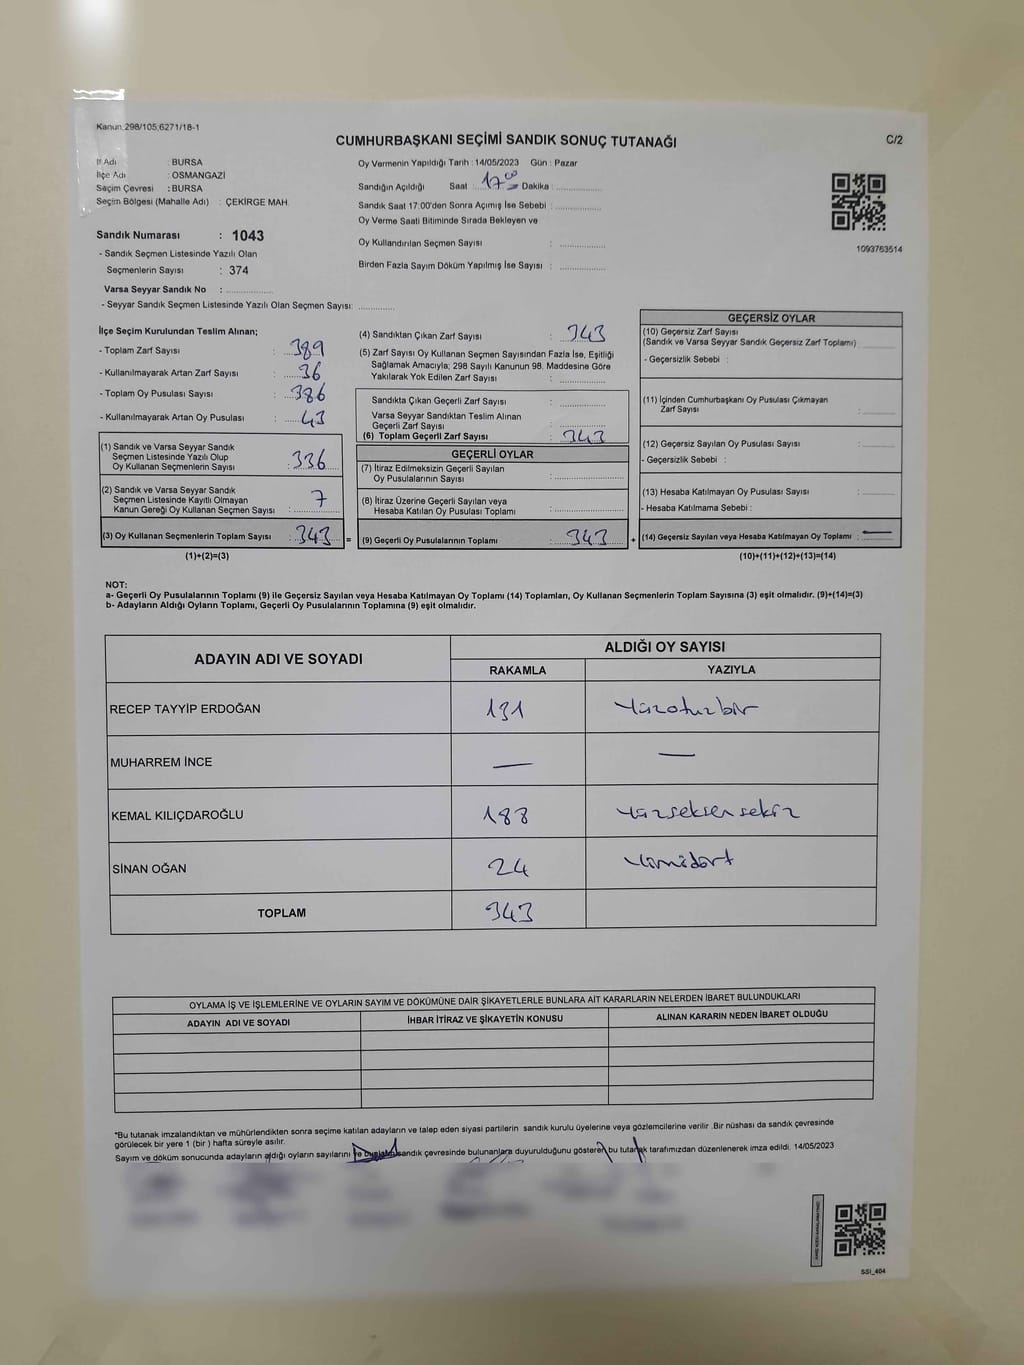 Kanun:298/105;6271/18-1
CUMHURBAŞKANI SEÇİMİ SANDIK SONUÇ TUTANAĞI
C/2
İl Adı : BURSA
İlçe Adı : OSMANGAZİ
Seçim Çevresi : BURSA
Seçim Bölgesi (Mahalle Adı) : ÇEKİRGE MAH.
Sandık Numarası : 1043
- Sandık Seçmen Listesinde Yazılı Olan
Seçmenlerin Sayısı : 374
Varsa Seyyar Sandık No :
- Seyyar Sandık Seçmen Listesinde Yazılı Olan Seçmen Sayısı:
Oy Vermenin Yapıldığı Tarih : 14/05/2023 Gün : Pazar
Sandığın Açıldığı Saat : 17 00 Dakika :
Sandık Saat 17:00'den Sonra Açımış İse Sebebi :
Oy Verme Saati Bitiminde Sırada Bekleyen ve
Oy Kullandırılan Seçmen Sayısı :
Birden Fazla Sayım Döküm Yapılmış İse Sayısı :
1093763514
İlçe Seçim Kurulundan Teslim Alınan;
- Toplam Zarf Sayısı : 389
- Kullanılmayarak Artan Zarf Sayısı : 36
- Toplam Oy Pusulası Sayısı : 386
- Kullanılmayarak Artan Oy Pusulası : 43
(1) Sandık ve Varsa Seyyar Sandık
Seçmen Listesinde Yazılı Olup
Oy Kullanan Seçmenlerin Sayısı : 336
(2) Sandık ve Varsa Seyyar Sandık
Seçmen Listesinde Kayıtlı Olmayan
Kanun Gereği Oy Kullanan Seçmen Sayısı : 7
(3) Oy Kullanan Seçmenlerin Toplam Sayısı : 343 =
(1)+(2)=(3)
(4) Sandıktan Çıkan Zarf Sayısı : 343
(5) Zarf Sayısı Oy Kullanan Seçmen Sayısından Fazla İse, Eşitliği
Sağlamak Amacıyla; 298 Sayılı Kanunun 98. Maddesine Göre
Yakılarak Yok Edilen Zarf Sayısı :
Sandıkta Çıkan Geçerli Zarf Sayısı :
Varsa Seyyar Sandıktan Teslim Alınan
Geçerli Zarf Sayısı :
(6) Toplam Geçerli Zarf Sayısı : 343
GEÇERLİ OYLAR
(7) İtiraz Edilmeksizin Geçerli Sayılan
Oy Pusulalarının Sayısı :
(8) İtiraz Üzerine Geçerli Sayılan veya
Hesaba Katılan Oy Pusulası Toplamı :
(9) Geçerli Oy Pusulalarının Toplamı : 343 +
GEÇERSİZ OYLAR
(10) Geçersiz Zarf Sayısı
(Sandık ve Varsa Seyyar Sandık Geçersiz Zarf Toplamı)
- Geçersizlik Sebebi :
(11) İçinden Cumhurbaşkanı Oy Pusulası Çıkmayan
Zarf Sayısı :
(12) Geçersiz Sayılan Oy Pusulası Sayısı :
- Geçersizlik Sebebi :
(13) Hesaba Katılmayan Oy Pusulası Sayısı :
- Hesaba Katılmama Sebebi :
(14) Geçersiz Sayılan veya Hesaba Katılmayan Oy Toplamı : —
(10)+(11)+(12)+(13)=(14)
NOT:
a- Geçerli Oy Pusulalarının Toplamı (9) ile Geçersiz Sayılan veya Hesaba Katılmayan Oy Toplamı (14) Toplamları, Oy Kullanan Seçmenlerin Toplam Sayısına (3) eşit olmalıdır. (9)+(14)=(3)
b- Adayların Aldığı Oyların Toplamı, Geçerli Oy Pusulalarının Toplamına (9) eşit olmalıdır.
ADAYIN ADI VE SOYADI
ALDIĞI OY SAYISI
RAKAMLA YAZIYLA
RECEP TAYYİP ERDOĞAN 131 Yüzotuzbir
MUHARREM İNCE — —
KEMAL KILIÇDAROĞLU 188 Yüzseksensekiz
SİNAN OĞAN 24 Yirmidört
TOPLAM 343
OYLAMA İŞ VE İŞLEMLERİNE VE OYLARIN SAYIM VE DÖKÜMÜNE DAİR ŞİKAYETLERLE BUNLARA AİT KARARLARIN NELERDEN İBARET BULUNDUKLARI
ADAYIN ADI VE SOYADI İHBAR İTİRAZ VE ŞİKAYETİN KONUSU ALINAN KARARIN NEDEN İBARET OLDUĞU
*Bu tutanak imzalandıktan ve mühürlendikten sonra seçime katılan adayların ve talep eden siyasi partilerin sandık kurulu üyelerine veya gözlemcilerine verilir .Bir nüshası da sandık çevresinde
görülecek bir yere 1 (bir ) hafta süreyle asılır.
Sayım ve döküm sonucunda adayların aldığı oyların sayılarını ve sandık çevresinde bulunanlara duyurulduğunu gösteren bu tutanak tarafımızdan düzenlenerek imza edildi. 14/05/2023
SSİ_404